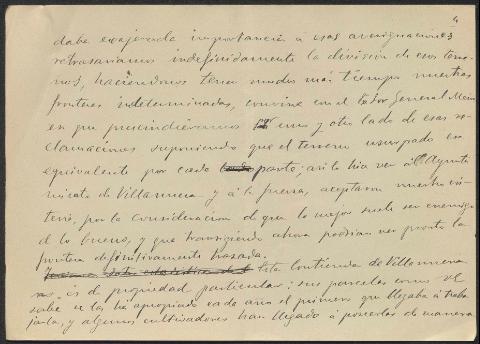 4
daba exajerada importancia a esas averiguaciones
retrasariamos indefinidamente la división de esos terre-
nos, haciendonos tener mucho más tiempo nuestras
fronteras indeterminadas, convine con el Señor General
en que prescindiéramos por uno y otro lado de esas re-
clamaciones suponiendo que el terreno usurpado era
equivalente por cada parte; así lo hice ver al Ayunta-
miento de Villanueva y a la prensa, aceptaron nuestro cri-
terio, por la consideración de que lo mejor suele ser enemigo
de lo bueno, y que transigiendo ahora podrían ver pronto la
frontera definitivamente trazada.
Esta contienda de Villanueva
no es de propiedad particular; sus parcelas como V.E.
sabe se las ha apropiado cada año el primero que llegaba á traba
jarla, y algunos cultivadores han llegado á poseerlas de manera